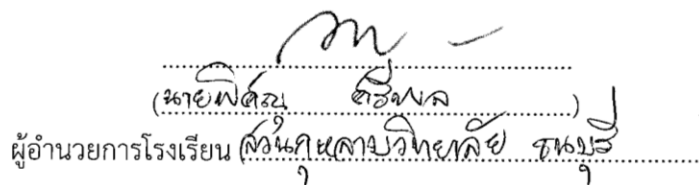 (นายพิศณุ ศรีพล)
ผู้อำนวยการโรงเรียน สวนกุหลาบวิทยาลัย ธนบุรี